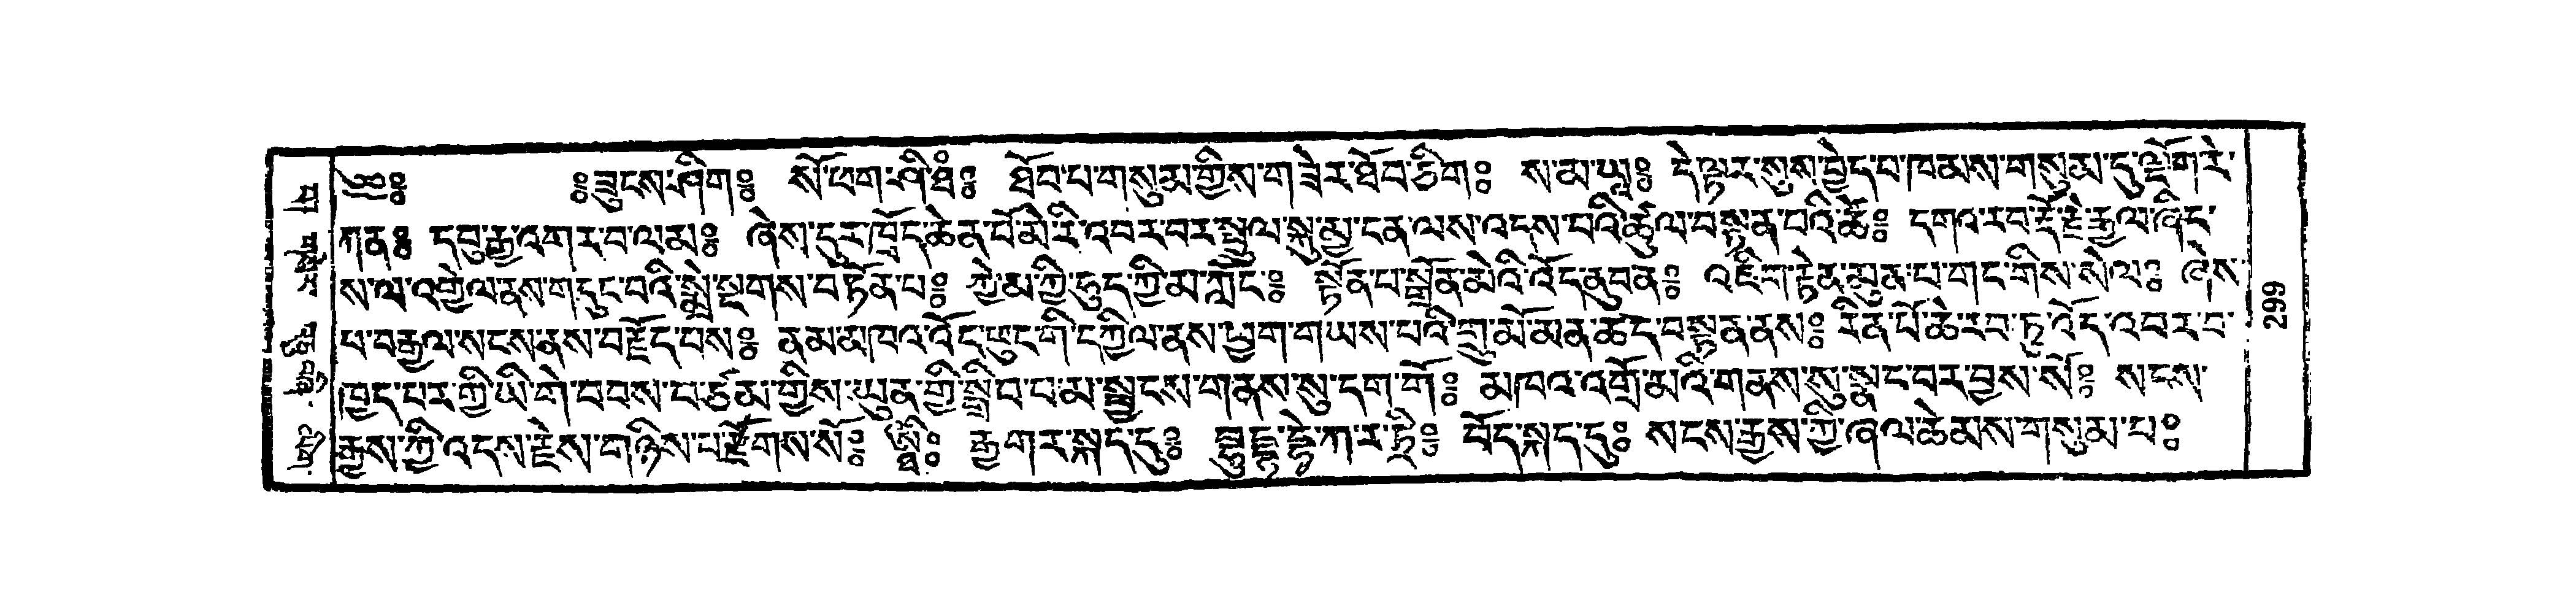 ༄༅༔ ༔བླངས་ཤིག༔ སོ་ཁག་ཤི་ཐཾ༔ ཐོབ་པ་གསུམ་གྱིས་གཟེར་ཐེབ་ཅིག༔ ས་མ་ཡ༔ དེ་ལྟར་སུས་བྱེད་པ་ཁམས་གསུམ་དུ་ལྡོག་རེ་
ཀན༔ དབུ་རྒྱ་འགར་བ་ལམ༔ ཞེས་དུར་ཁྲོད་ཆེན་པོ་མེ་རི་འབར་བར་སྤྲུལ་སྐུ་མྱ་ངན་ལས་འདས་པའི་ཚུལ་བསྟན་པའི་ཚེ༔ དགའ་རབ་རྡོ་རྗེ་རྒྱལ་ཞིང་
ས་ལ་འགྱེལ་ནས་གདུང་བའི་སྨྲེ་སྔགས་བཏོན་པ༔ ཀྱེ་མ་ཀྱི་ཧུད་ཀྱི་མ་ཀློང༔ སྟོན་པ་སྒྲོན་མེའི་འོད་ནུབ་ན༔ འཇིག་རྟེན་མུན་པ་གང་གིས་སེལ༔ ཞེས་
པ་བརྒྱལ་སངས་ནས་བརྗོད་པས༔ ནམ་མཁའ་འོད་ཕུང་གི་དཀྱིལ་ནས་ཕྱག་གཡས་པའི་གྲུ་མོ་མན་ཚད་བསྟན་ནས༔ རིན་པོ་ཆེ་རབ་ཏུ་འོད་འབར་བ་
ཁྱད་པར་གྱི་ཡི་གེ་བབས་པ་ཙམ་གྱིས་ཡུན་གྱི་སྒྲིབ་པ་མ་སྦྱངས་གནས་སུ་དག་གོ༔ མཁའ་འགྲོ་མའི་གནས་སུ་སྣང་བར་བྱས་སོ༔ སངས་
རྒྱས་ཀྱི་འདས་རྗེས་གཉིས་པ་རྫོགས་སོ༔ ཨྠྀི༔ རྒྱ་གར་སྐད་དུ༔ བུདྡྷ་ཧེ་ཀ་ར་ཏི༔ བོད་སྐད་དུ༔ སངས་རྒྱས་ཀྱི་ཞལ་ཆེམས་གསུམ་པ༔